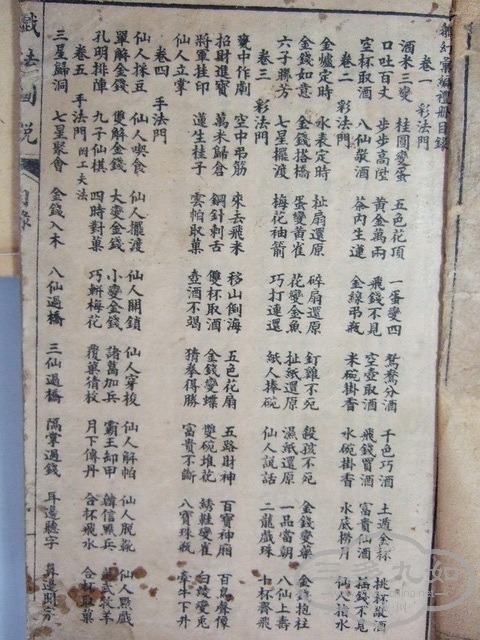 彙編禮冊目錄
卷一 彩法門
酒米三變 桂圓變蛋 五色花頂 一蛋變四 鴛鴦分酒 千色巧酒 土遁金杯 桃杯敬酒
口吐百丈 步步高陞 黃金萬兩 飛錢不見 空壺取酒 飛錢買酒 富貴仙酒
空杯取酒 八仙敬酒 茶內生蓮 金線吊瓶 米碗掛香 水碗掛香 水底撈月
卷二 彩法門
金爐定時 水表定時 扯扇還原 碎扇還原 釘雞不死 殺孩不死 金錢變藥 金錢抱柱
金錢如意 金錢搭橋 蛋變黃雀 花變金魚 扯紙還原 濕紙還原 一品當朝 八仙上壽
六子聯芳 七星擺渡 梅花袖箭 巧打連還 紙人捧碗 仙人說話 二龍戲珠 十杯齊飛
卷三 彩法門
甕中作劇 空中吊筋 來去飛米 移山倒海 五色花扇 五路財神 百寶神廚 百鳥聲像
招財進寶 萬米歸倉 鋼針刺舌 雙杯取酒 金錢變蝶 鑽碗堆花 綉鞋變雀 白綾變兎
將軍挂印 蓮生桂子 雲帕取菓 壺酒不竭 猜拳得勝 富貴不斷 八寶珠瓶 牽牛下井
仙人立掌
卷四 手法門
仙人採豆 仙人喫食 仙人擺渡 仙人開鎖 仙人穿梭 仙人解帕 仙人脫靴 仙人點戲
單解金錢 雙解金錢 大變金錢 小變金錢 諸葛加兵 霸王卸甲 韓信點兵
孔明排陣 九子仙棋 四時對菓 巧斬梅花 覆菓猜枚 月下傳丹 合杯飛水 合杯取菓
卷五 手法門 附工夫法
三星歸洞 七星聚會 金錢入木 八仙過橋 三仙過橋 隔掌過錢 耳邊聽字 鼻邊聞字
戲法圖說
目錄
三多九如